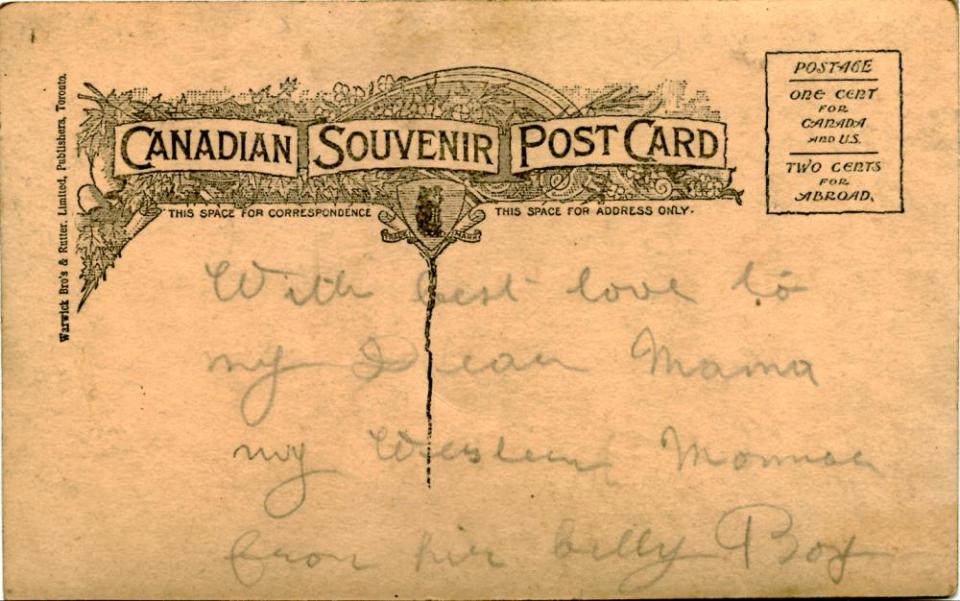 Warwick Bro's & Rutter, Limited, Publishers, Toronto.
CANADIAN SOUVENIR POST CARD
POSTAGE
ONE CENT
FOR
CANADA
AND U.S.
TWO CENTS
FOR
ABROAD.
THIS SPACE FOR CORRESPONDENCE
THIS SPACE FOR ADDRESS ONLY.
With best love to
my Dear Mama
my Western
from her billy Boy